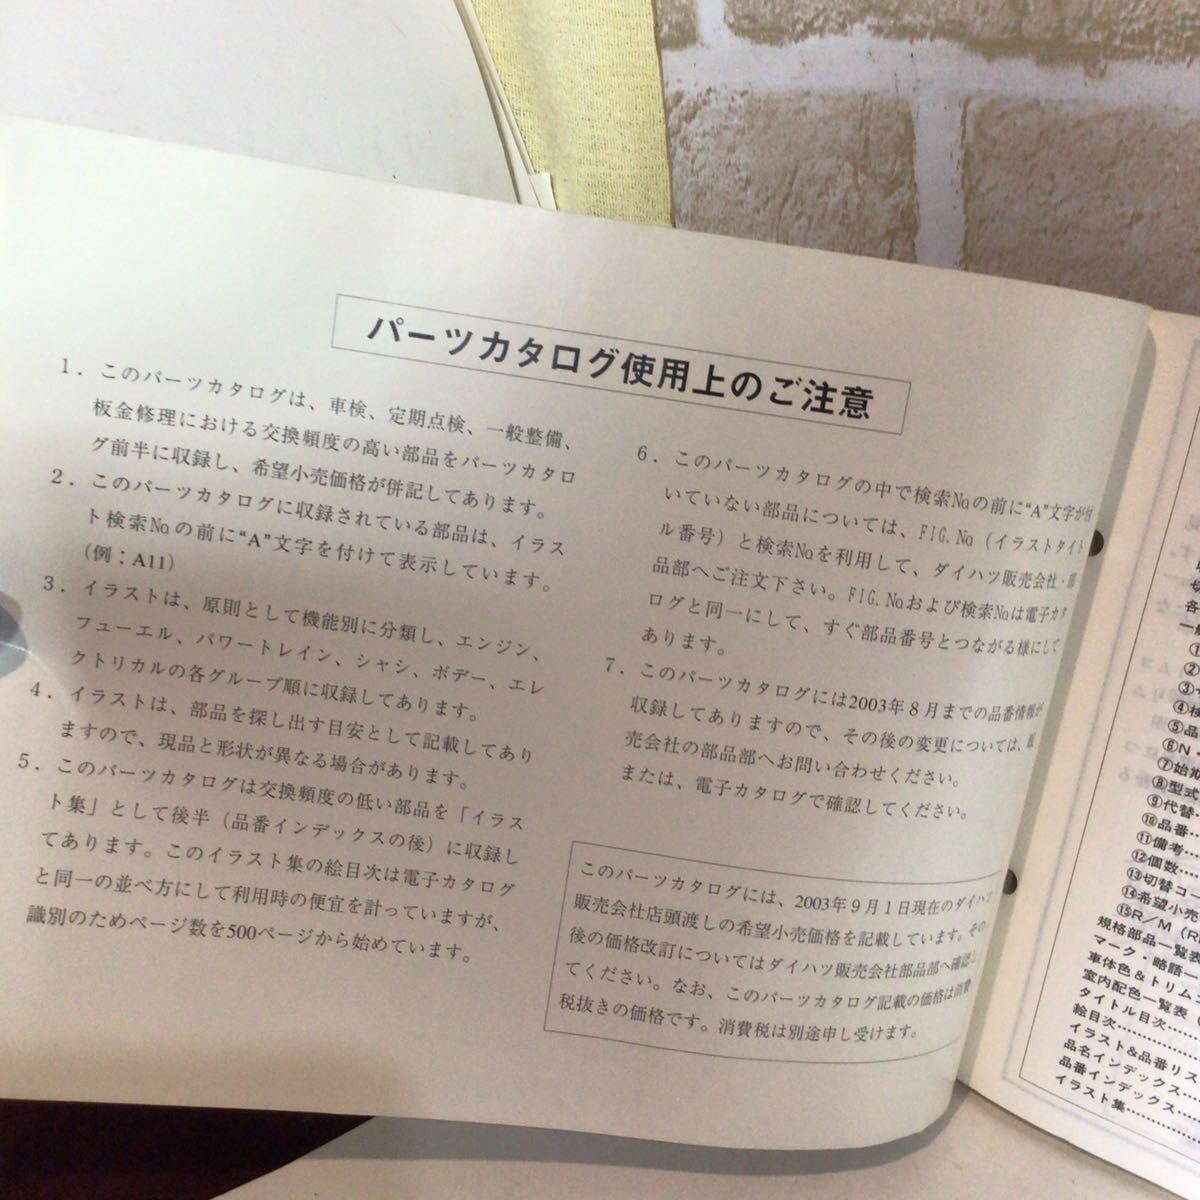 パーツカタログ使用上のご注意
1．このパーツカタログは、車検、定期点検、一般整備、
板金修理における交換頻度の高い部品をパーツカタロ
グ前半に収録し、希望小売価格が併記してあります。
2．このパーツカタログに収録されている部品は、イラス
ト検索№の前に“A”文字を付けて表示しています。
(例：A11)
3．イラストは、原則として機能別に分類し、エンジン、
フューエル、パワートレイン、シャシ、ボデー、エレ
クトリカルの各グループ順に収録してあります。
4．イラストは、部品を探し出す目安として記載してあり
ますので、現品と形状が異なる場合があります。
5．このパーツカタログは交換頻度の低い部品を「イラス
ト集」として後半（品番インデックスの後）に収録し
てあります。このイラスト集の絵目次は電子カタログ
と同一の並べ方にして利用時の便宜を計っていますが、
識別のためページ数を500ページから始めています。
6．このパーツカタログの中で検索№の前に“A”文字が付
いていない部品については、FIG.№（イラストタイト
ル番号）と検索№を利用して、ダイハツ販売会社・部
品部へご注文下さい。FIG.№および検索№は電子カタ
ログと同一にして、すぐ部品番号とつながる様にして
あります。
7．このパーツカタログには2003年８月までの品番情報が
収録してありますので、その後の変更については、販
売会社の部品部へお問い合わせください。
または、電子カタログで確認してください。
このパーツカタログには、2003年９月１日現在のダイハツ
販売会社店頭渡しの希望小売価格を記載しています。その
後の価格改訂についてはダイハツ販売会社部品部へ確認し
てください。なお、このパーツカタログ記載の価格は消費
税抜きの価格です。消費税は別途申し受けます。
各
一般
①
②
③
④検
⑤品
⑥N
⑦始期
⑧型式
⑨代替
⑩品番
⑪備考…
⑫個数……
⑬切替コ
⑭希望小売
⑮R／M（R
規格部品一覧表
マーク・略語一
車体色＆トリム
室内配色一覧表（
タイトル目次……
絵目次……
イラスト&品番リス
品名インデックス……
品番インデックス……
イラスト集……